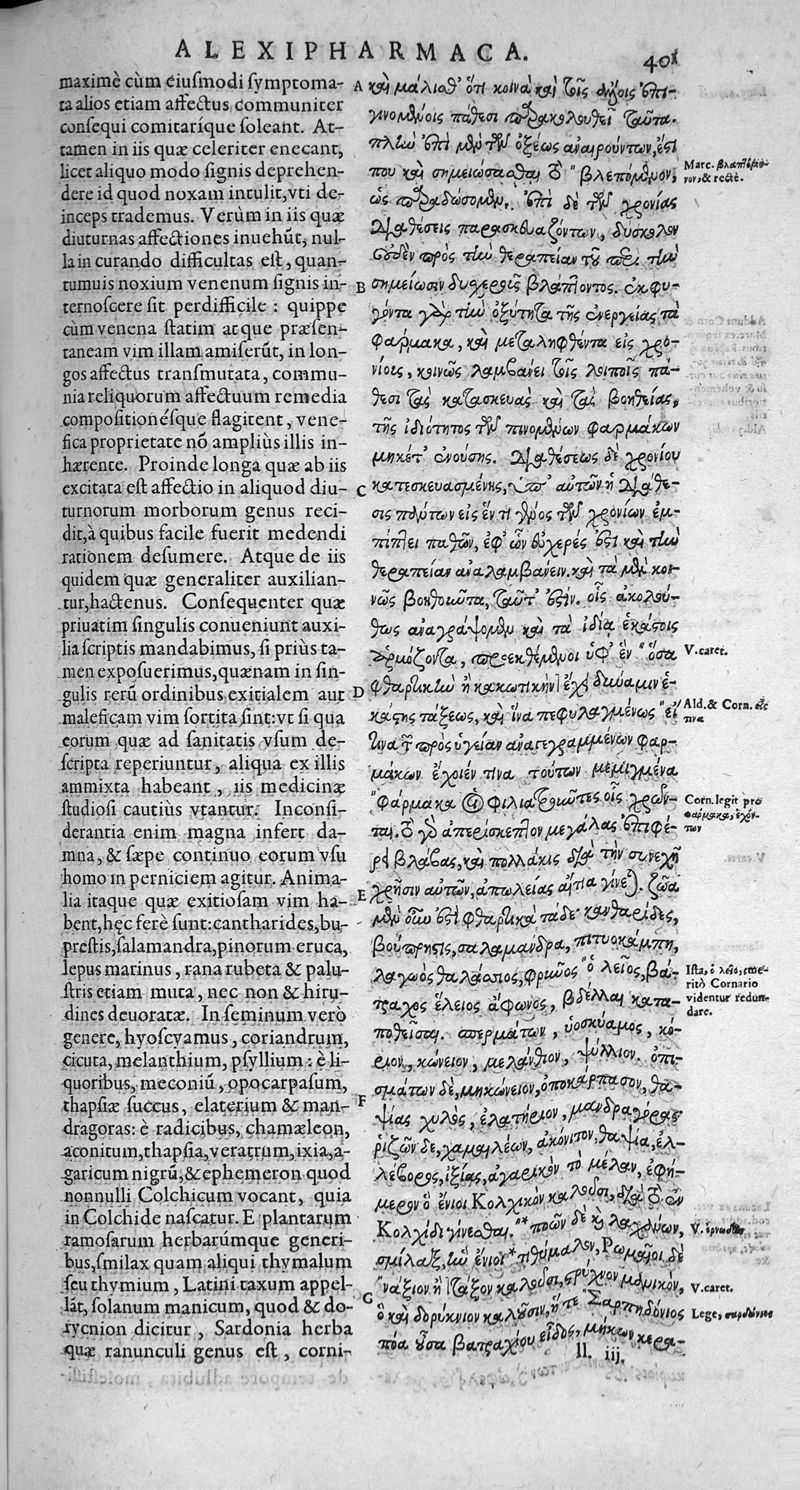 ALEXIPHARMACA.
401
maximè cùm eiuſmodi ſymptoma-
ta alios etiam affectus communiter
conſequi comitarique ſoleant. At-
tamen in iis quæ celeriter enecant,
licet aliquo modo ſignis deprehen-
dere id quod noxam intulit, vti de-
inceps trademus. Verùm in iis quæ
diuturnas affectiones inuehũt, nul-
la in curando difficultas eſt, quan-
tumuis noxium venenum ſignis in-
ternoſcere ſit perdifficile : quippe
cùm venena ſtatim atque præſen-
taneam vim illam amiſerũt, in lon-
gos affectus tranſmutata, commu-
nia reliquorum affectuum remedia
compoſitionéſque flagitent, vene-
fica proprietate nõ ampliùs illis in-
hærente. Proinde longa quæ ab iis
excitata eſt affectio in aliquod diu-
turnorum morborum genus reci-
dit, à quibus facile fuerit medendi
rationem deſumere. Atque de iis
quidem quæ generaliter auxilian-
tur, hactenus. Conſequenter quæ
priuatim ſingulis conueniunt auxi-
lia ſcriptis mandabimus, ſi priùs ta-
men expoſuerimus, quænam in ſin-
gulis rerũ ordinibus exitialem aut
maleficam vim ſortita ſint: vt ſi qua
eorum quæ ad ſanitatis vſum de-
ſcripta reperiuntur, aliqua ex illis
ammixta habeant, iis medicinæ
ſtudioſi cautiùs vtantur. Inconſi-
derantia enim magna infert da-
mna, & ſæpe continuo eorum vſu
homo in perniciem agitur. Anima-
lia itaque quæ exitioſam vim ha-
bent, hęc ferè ſunt: cantharides, bu-
preſtis, ſalamandra, pinorum eruca,
lepus marinus, rana rubeta & palu-
ſtris etiam muta, nec non & hiru-
dines deuoratæ. In ſeminum verò
genere, hyoſcyamus, coriandrum,
cicuta, melanthium, pſyllium: è li-
quoribus, meconiũ, opocarpaſum,
thapſiæ ſuccus, elaterium & man-
dragoras: è radicibus, chamæleon,
aconitum, thapſia, veratrum, ixia, a-
garicum nigrũ, & ephemeron quod
nonnulli Colchicum vocant, quia
in Colchide naſcatur. E plantarum
ramoſarum herbarúmque generi-
bus, ſmilax quam aliqui thymalum
ſeu thymium, Latini taxum appel-
lãt, ſolanum manicum, quod & do-
rycnion dicitur, Sardonia herba
quæ ranunculi genus eſt, corni-
A
B
C
D
E
F
G
καὶ μάλισθ' ὅτι κοινὰ καὶ τοῖς ἄλλοις ἐπι-
γινομένοις πάθεσι παρακολουθεῖ ταῦτα.
πλὴν ἐπὶ μὲν τῶν ὀξέως ἀναιρούντων, ἔστι
που καὶ σημειώσασθαι τὸ " βλεπόμενον,
ὡς παραδώσομεν. ἐπὶ δὲ τῶν χρονίας
διαθέσεις παρασκευαζόντων, δύσκολον
οὐδὲν πρὸς τὴν θεραπείαν τοῦ περὶ τὴν
σημείωσιν δυχεροῦς βλάπτοντος. ἐκφυ-
γόντα γὰρ τὴν ὀξύτητα τῆς ἐνεργείας τὰ
φάρμακα, καὶ μεταληφθέντα εἰς χρο-
νίοις, κοινῶς λαμβάνει τοῖς λοιποῖς πά-
θεσι τὰς κατασκευὰς καὶ τὰς βοηθείας,
τῆς ἰδιότητος τῶν πινομένων φαρμάκων
μηκέτ' ἐνούσης. διαθέσεως δὲ χρονίου
κατεσκευασμένης, ὑπ' αὐτῶν ἡ διάθε-
σις πρώτων εἰς ἕν τι γένος τῶν χρονίων ἐμ-
πίπτει παθῶν, ἐφ' ὧν εὐχερές ἐστι καὶ τὴν
θεραπείαν ἀναλαμβάνειν. καὶ τὰ μὲν κοι-
νῶς βοηθοῦντα, ταῦτ' ἐστίν. οἷς ἀκολού-
θως ἀναγράψομεν καὶ τὰ ἰδίᾳ ἑκάστοις
ἁρμόζοντα, προεκθέμενοι ὑφ' ἓν " ὅσα
φθαρτικὴν ἢ κακωτικὴν ἔχει δύναμιν ἑ-
κάστης τάξεως, καὶ ἵνα πεφυλαγμένως " εἴ
τινα τ πρὸς ὑγείαν ἀναγεγραμμένων φαρ-
μάκων ἔχοιέν τινα τούτων μεμιγμένα
" φάρμακα οἱ φιλιατροῦντες οἷς χρῶν-
ται. τὸ γὰρ ἀπερίσκεπτον μεγάλας ἐπιφέ-
ρει βλάβας, καὶ πολλάκις διὰ τὴν συνεχῆ
χρῆσιν αὐτῶν, ἀπωλείας αἰτία γίνεται. ζῶα
μὲν οὖν ἐστὶ φθαρτικὰ τάδε· κανθαρίδες,
βούπρηστις, σαλαμάνδρα, πιτυοκάμπη,
λαγωὸς θαλάσσιος, φρῦνος " ὁ λεῖος, βά-
τραχος ἕλειος ἄφωνος, βδέλλαι κατα-
ποθεῖσαι. σπερμάτων, ὑοσκύαμος, κό-
ριον, κώνειον, μελάνθιον, ψύλλιον. ὀπι-
σμάτων δὲ, μηκώνειον, ὀποκάρπασον, θα-
ψίας χυλὸς, ἐλατήριον, μανδραγόρας·
ῥιζῶν δὲ, χαμαιλέων, ἀκόνιτον, θαψία, ἑλ-
λέβορος, ἰξίας, ἀγαρικὸν τὸ μέλαν, ἐφή-
μερον ὃ ἔνιοι Κολχικὸν καλοῦσι, διὰ τὸ ἐν
Κολχίδι γίνεσθαι. "* ποῶν δὲ ἢ λαχάνων,
σμίλαξ, ἣν ἔνιοι * τιθύμαλον, Ρωμαῖοι δὲ
" νάξιον ἢ τάξον καλοῦσι, στρύχνον μανικὸν,
ὃ καὶ δορύκνιον καλοῦσιν, ἥ τε " Σαρπηδόνιος
πόα οὖσα βατραχίου εἶδος, μήκων κερα-
ll. iij.
Marc. βλαπτόμε-
νον, & rectè.
V. caret.
Ald. & Corn. εἰς
τινα
Corn. legit pro
φάρμακα, ἐχόν-
των
Iſta, ὁ λεῖος, me-
ritò Cornario
videntur redun-
dare.
V. caret.
Lege, σαρδόνιος